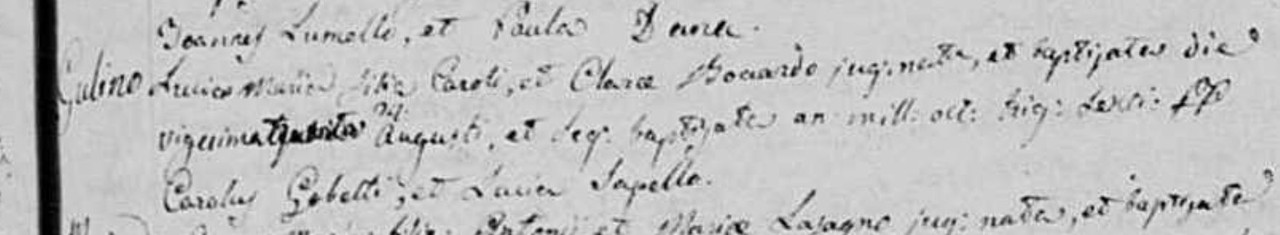 Joannes Lumello, et Paula Dova.
Gulino Lucia Maria filia Caroli, et Clara Bocardo jug: nata, et baptizata die
vigesima quinta 24 Augusti, et seq: baptizata an: mill: oct: trig: sexti: PP
Carolus Gobetti, et Lucia Sapello.
filia Antonii et Mariæ Lasagno jug: nata, et baptizata